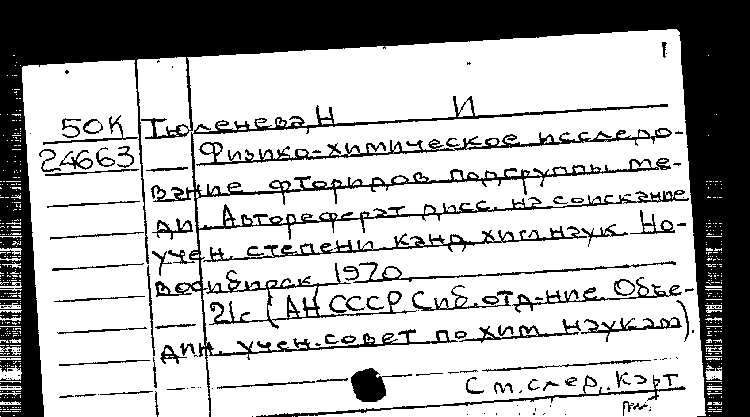 1
50К Тюленева, Н И
24663 Физико-химическое исследо-
вание фторидов подгруппы ме-
ди. Автореферат дисс. на соискание
учен. степени канд. хим. наук. Но-
восибирск, 1970.
21с (АН СССР. Сиб. отд-ние. Объе-
дин. учен. совет по хим. наукам).
См. след. карт